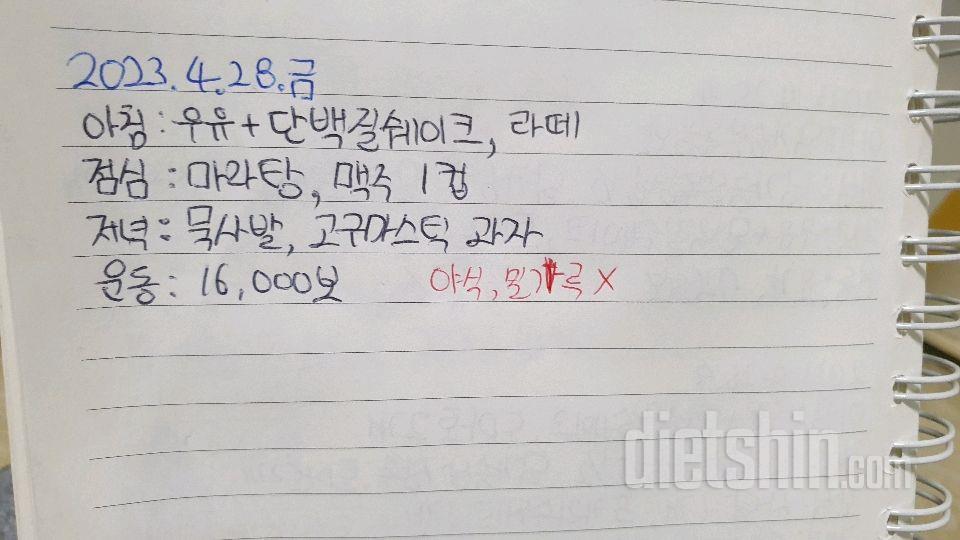 2023.4.28.금
아침 : 우유 + 단백질쉐이크, 라떼
점심 : 마라탕, 맥주 1컵
저녁 : 묵사발, 고구마스틱 과자
운동 : 16,000보 야식, 밀가루 X
dietshin.com